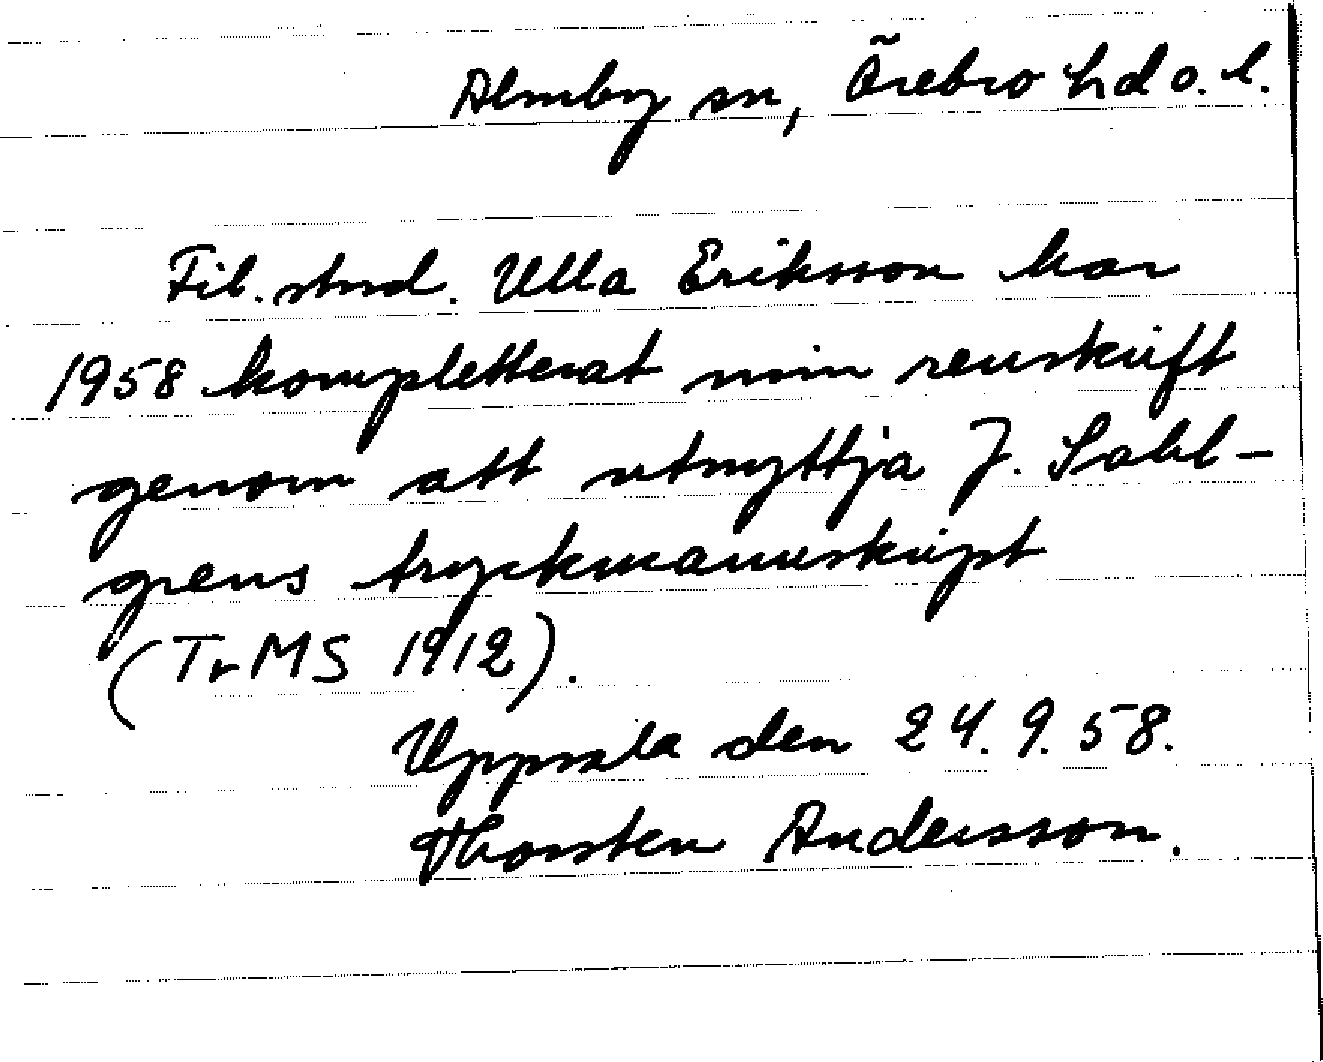 Almby sn, Örebro hd o. l.
Fil. stud. Ulla Eriksson har
1958 kompletterat min renskrift
genom att utnyttja J. Sahl-
grens tryckmanuskript
(TrMS 1912).
Uppsala den 24. 9. 58.
Thorsten Andersson.